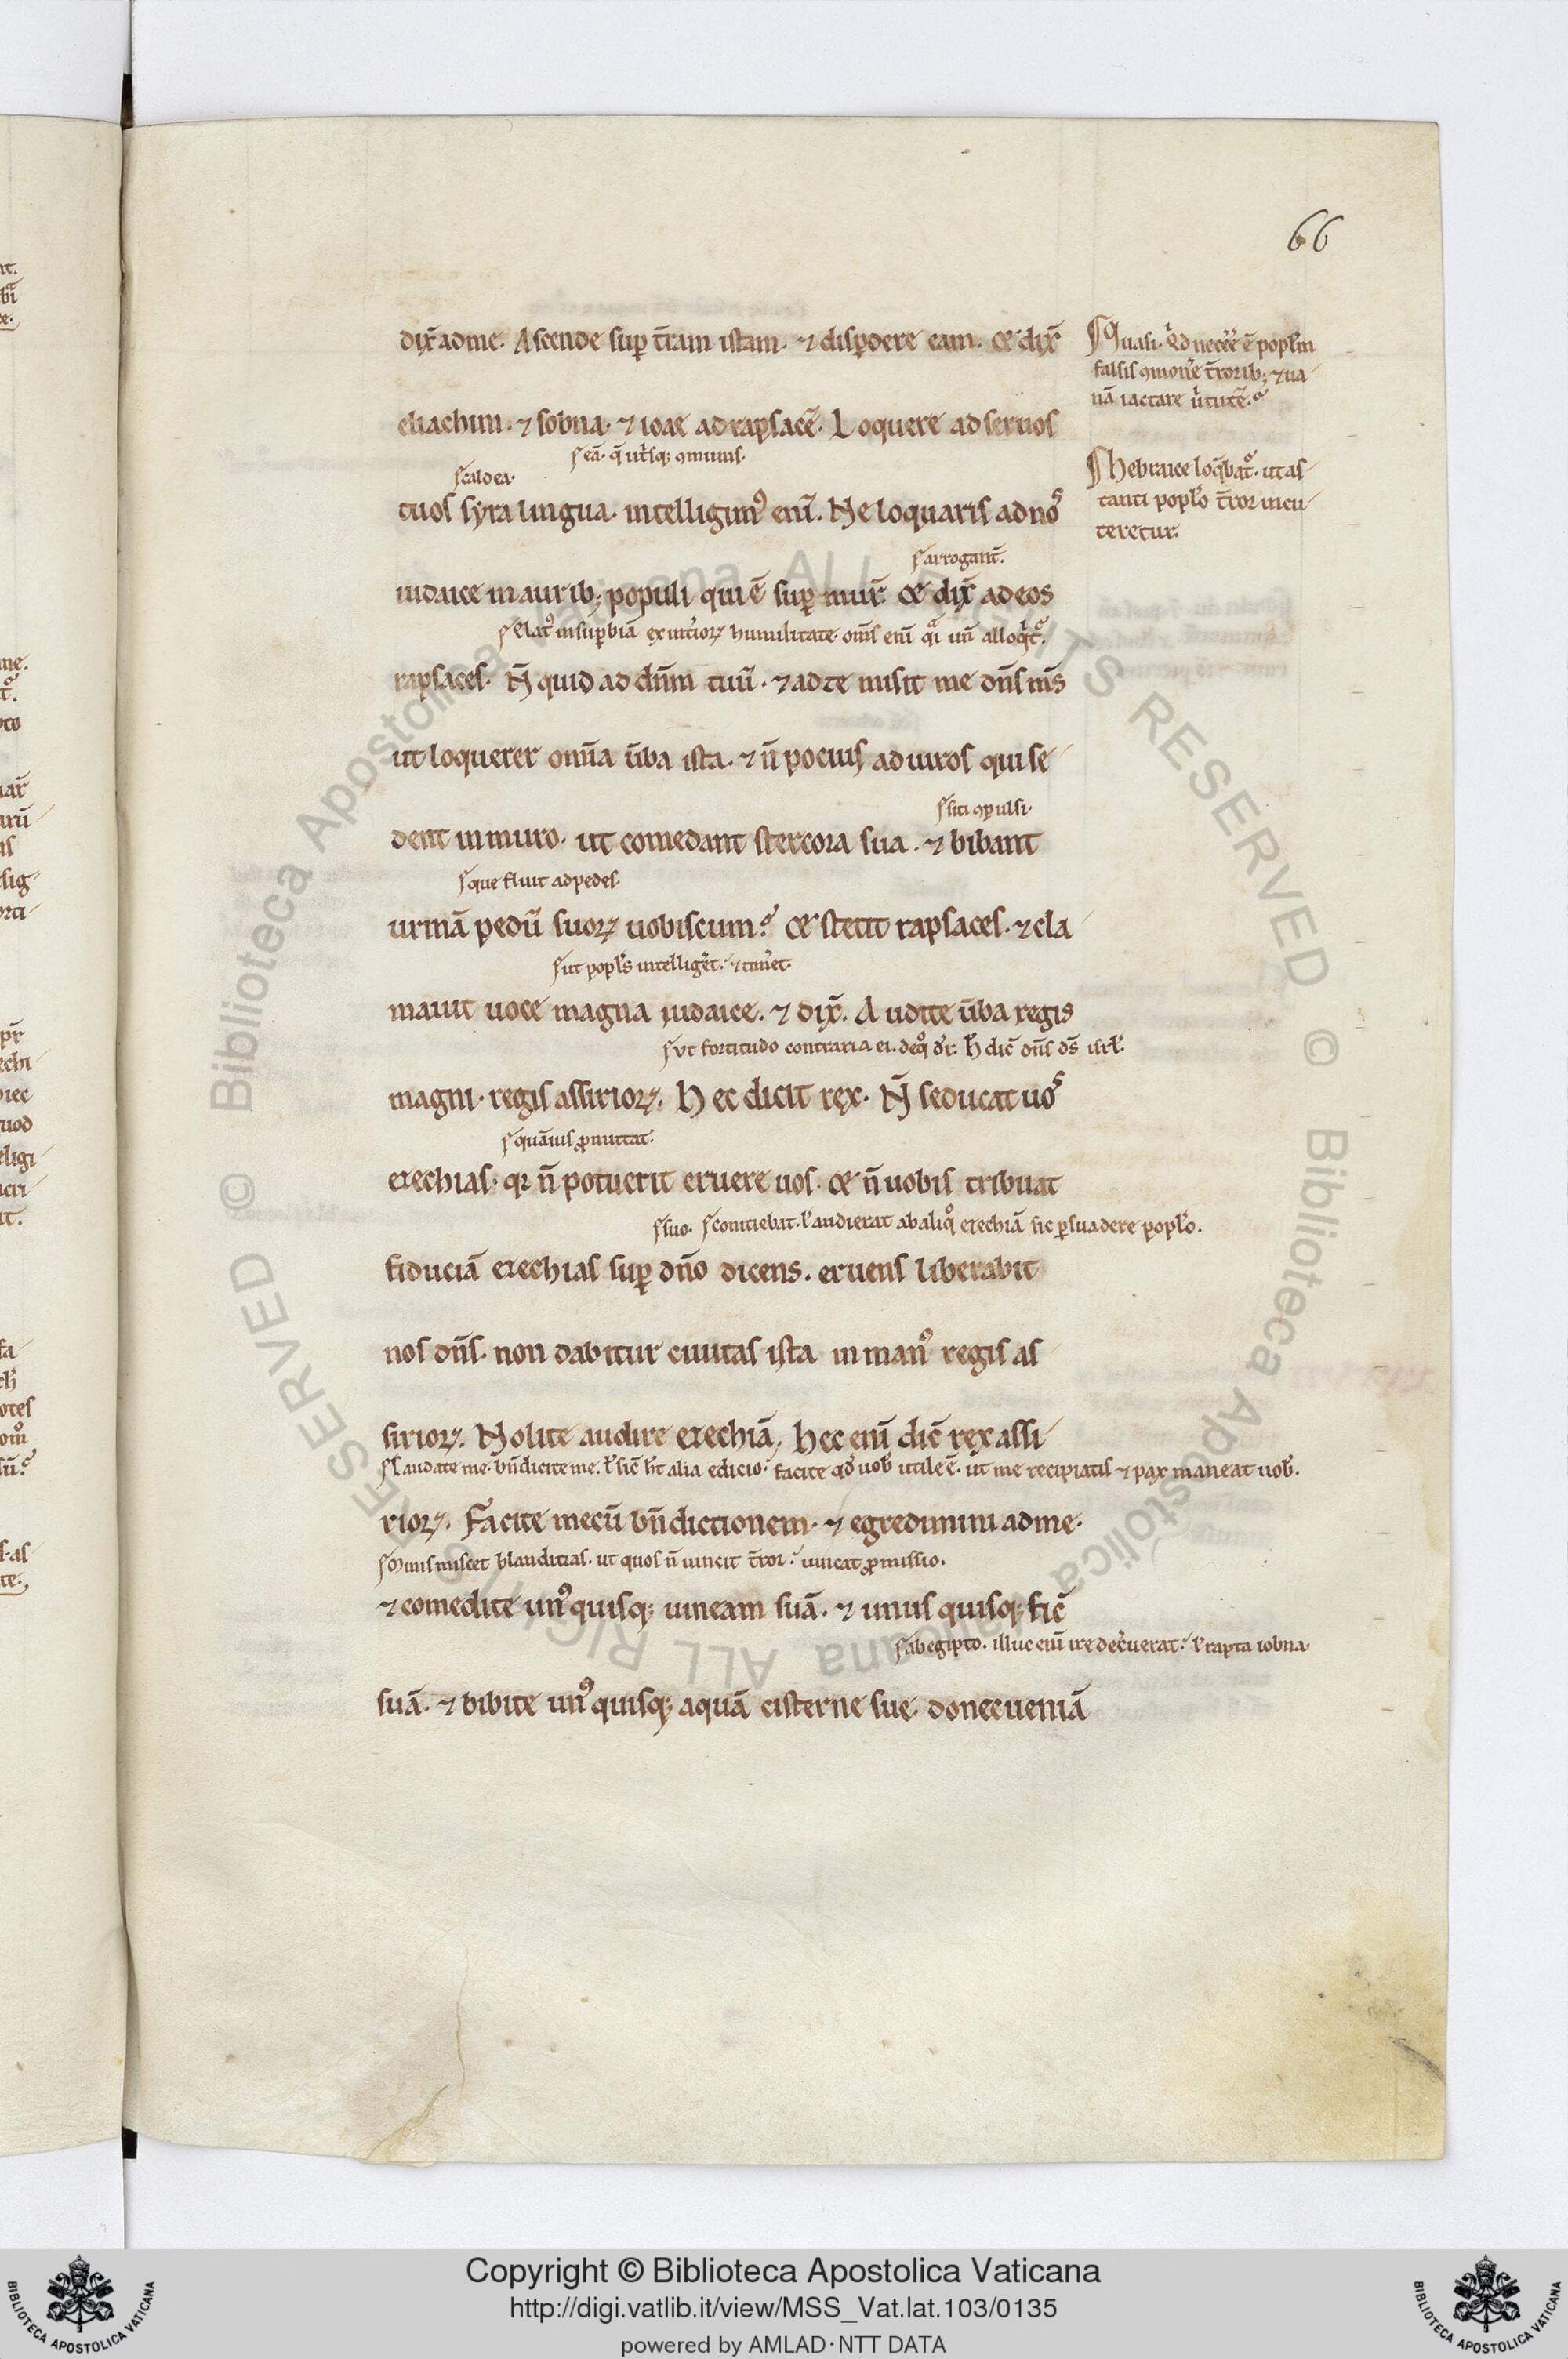 66
dix̄ adme. Ascende sup̄ t̄ram istam. ⁊ disp̄dere eam. Et dix̄
eliachim. ⁊ sobna. ⁊ ioae ad rapsacē. Loquere ad seruos
eā. q̄ utīsq; 9munis.
caldea.
tuos syra lingua. intelligim9 enī. Ne loquaris ad nos
arrogant̄.
iudaice in aurib; populi qui ē sup̄ mur̄. Et dix̄ ad eos
Elat9 in supbiā ex uict̄oꝝ humilitate. om̄s enī
rapsaces. N̄ quid ad dn̄m tuū. ⁊ ad te misit me dn̄s ms̄
ut loquerer om̄a ūba ista. ⁊ n̄ pocius ad uiros qui se
siti 9pulsi.
dent in muro. ut comedant stercora sua. ⁊ bibant
que fluit ad pedes.
urinā pedū suoꝝ uobiscum? Et stetit rapsaces. ⁊ cla
ut popl̄s intelliget. ⁊ tim̄et.
mauit uoce magna iudaice. ⁊ dix̄. Audite ūba regis
Vt fortitudo contraria ei. deq° dr̄. h̄ dic̄ dn̄s ds̄ isrl̄.
magni. regis assirioꝝ. Hec dicit rex. N̄ seducat uos
quāuis ꝓmittat.
ezechias. qr n̄ potuerit eruere uos. Et n̄ uobis tribuat
suo. coniciebat. ł audierat ab aliq° ezechiā sic psuadere popl̄o.
fiduciā ezechias sup̄ dn̄o dicens. eruens liberabit
nos dn̄s. non dabitur ciuitas ista in man9 regis as
sirioꝝ. Nolite audire ezechiā, hec enī dic̄ rex assi
Laudate me. bn̄dicite me. ł sic̄ ht̄ alia edicio. facite qd̄ uob̄ utile ē. ut me recipiatis ⁊ pax maneat uob̄.
rioꝝ. Facite mecū bn̄dictionem. ⁊ egredimini ad me.
Minis miscet blanditias. ut quos n̄ uincit t̄ror. uincat ꝓmissio.
⁊ comedite un9quisq; uineam suā. ⁊ unus quisq; fic̄
ab egipto. illuc enī ire dec̄uerat. ł capta lobna.
suā. ⁊ bibite un9quisq; aquā cisterne sue. donec ueniā
Quasi. Qd necēe ē popl̄m
falsis 9mon̄e t̄rorib; ⁊ ua
nā iactare ūtutē.
Hebraice loq̄bat̄. ut as
tanti popl̄o t̄ror incu
teretur.
© Biblioteca Apostolica Vaticana ALL RIGHTS RESERVED
© Biblioteca Apostolica Vaticana ALL RIGHTS RESERVED
Copyright © Biblioteca Apostolica Vaticana
http://digi.vatlib.it/view/MSS_Vat.lat.103/0135
powered by AMLAD·NTT DATA
BIBLIOTECA APOSTOLICA VATICANA
BIBLIOTECA APOSTOLICA VATICANA